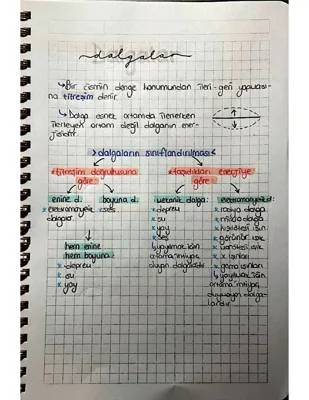 dalgalar
↳Bir cismin denge konumundan ileri-geri yapması-
na titreşim denir.
↳Dalga esnek ortamda ilerlerken
ilerleyen ortam değil dalganın ener-
jisidir.
>dalgaların sınıflandırılması<
*titreşim doğrultusuna
göre
enine d.
boyuna d.
x elektromanyetik
dalgalar
x ses
hem enine
hem boyuna
x deprem
x su
x yay
*taşıdıkları enerjiye
göre
mekanik dalga
x deprem
x su
x yay
x ses
↳yayılmak için
ortama ihtiyaç
duyan dalgalardır
elektromanyetik d.
x radyo dalga
x mikro dalga
x kızılötesi ışın
x görünür ışık
x x ışınları
x gama ışınları
↳yayılmak için
ortama ihtiyaç
duymayan dalga-
lardır